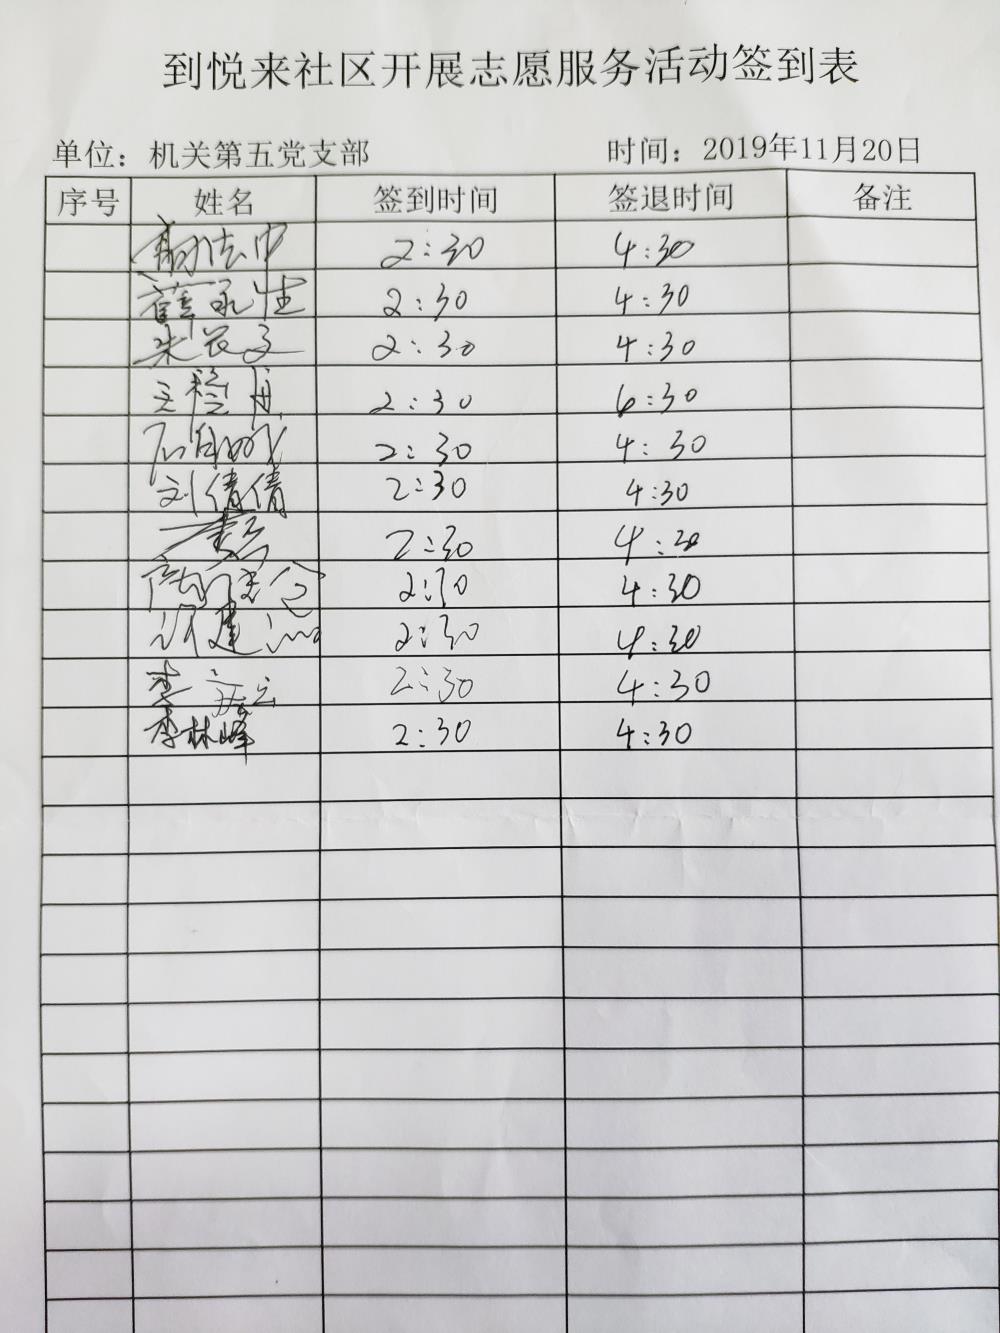 到悦来社区开展志愿服务活动签到表
单位：机关第五党支部 时间：2019年11月20日
序号 姓名 签到时间 签退时间 备注
2:30 4:30
2:30 4:30
2:30 4:30
2:30 6:30
2:30 4:30
刘倩倩 2:30 4:30
2:30 4:30
2:30 4:30
2:30 4:30
2:30 4:30
李林峰 2:30 4:30